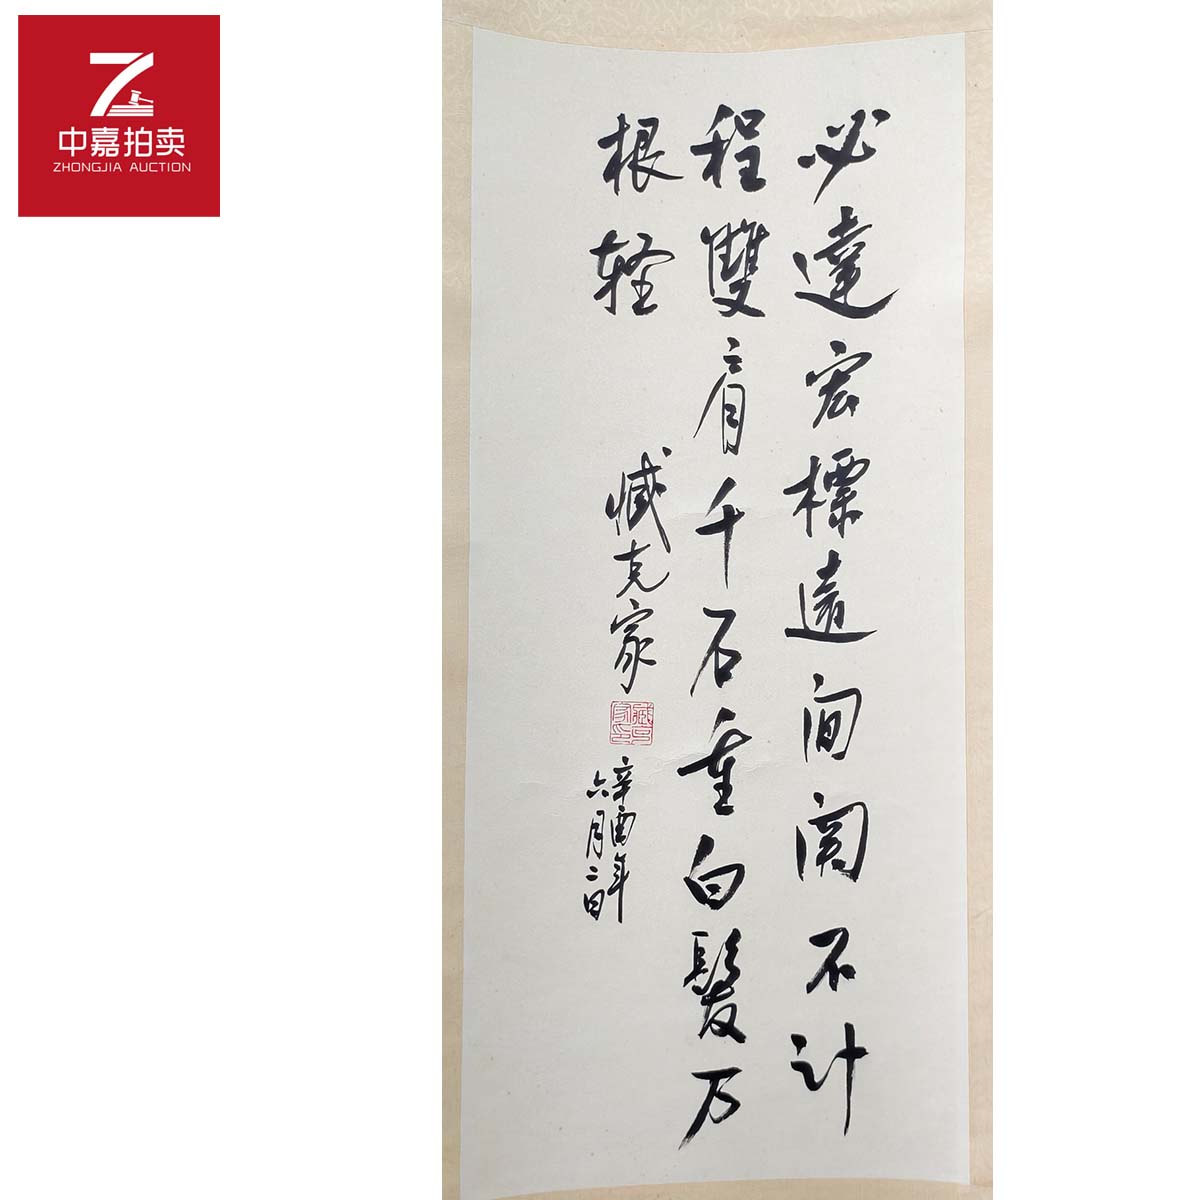 中嘉拍卖
ZHONGJIA AUCTION
必達宏標遠间関不计
程雙肩千石重白髮万
根轻
臧克家
辛酉年
六月二日